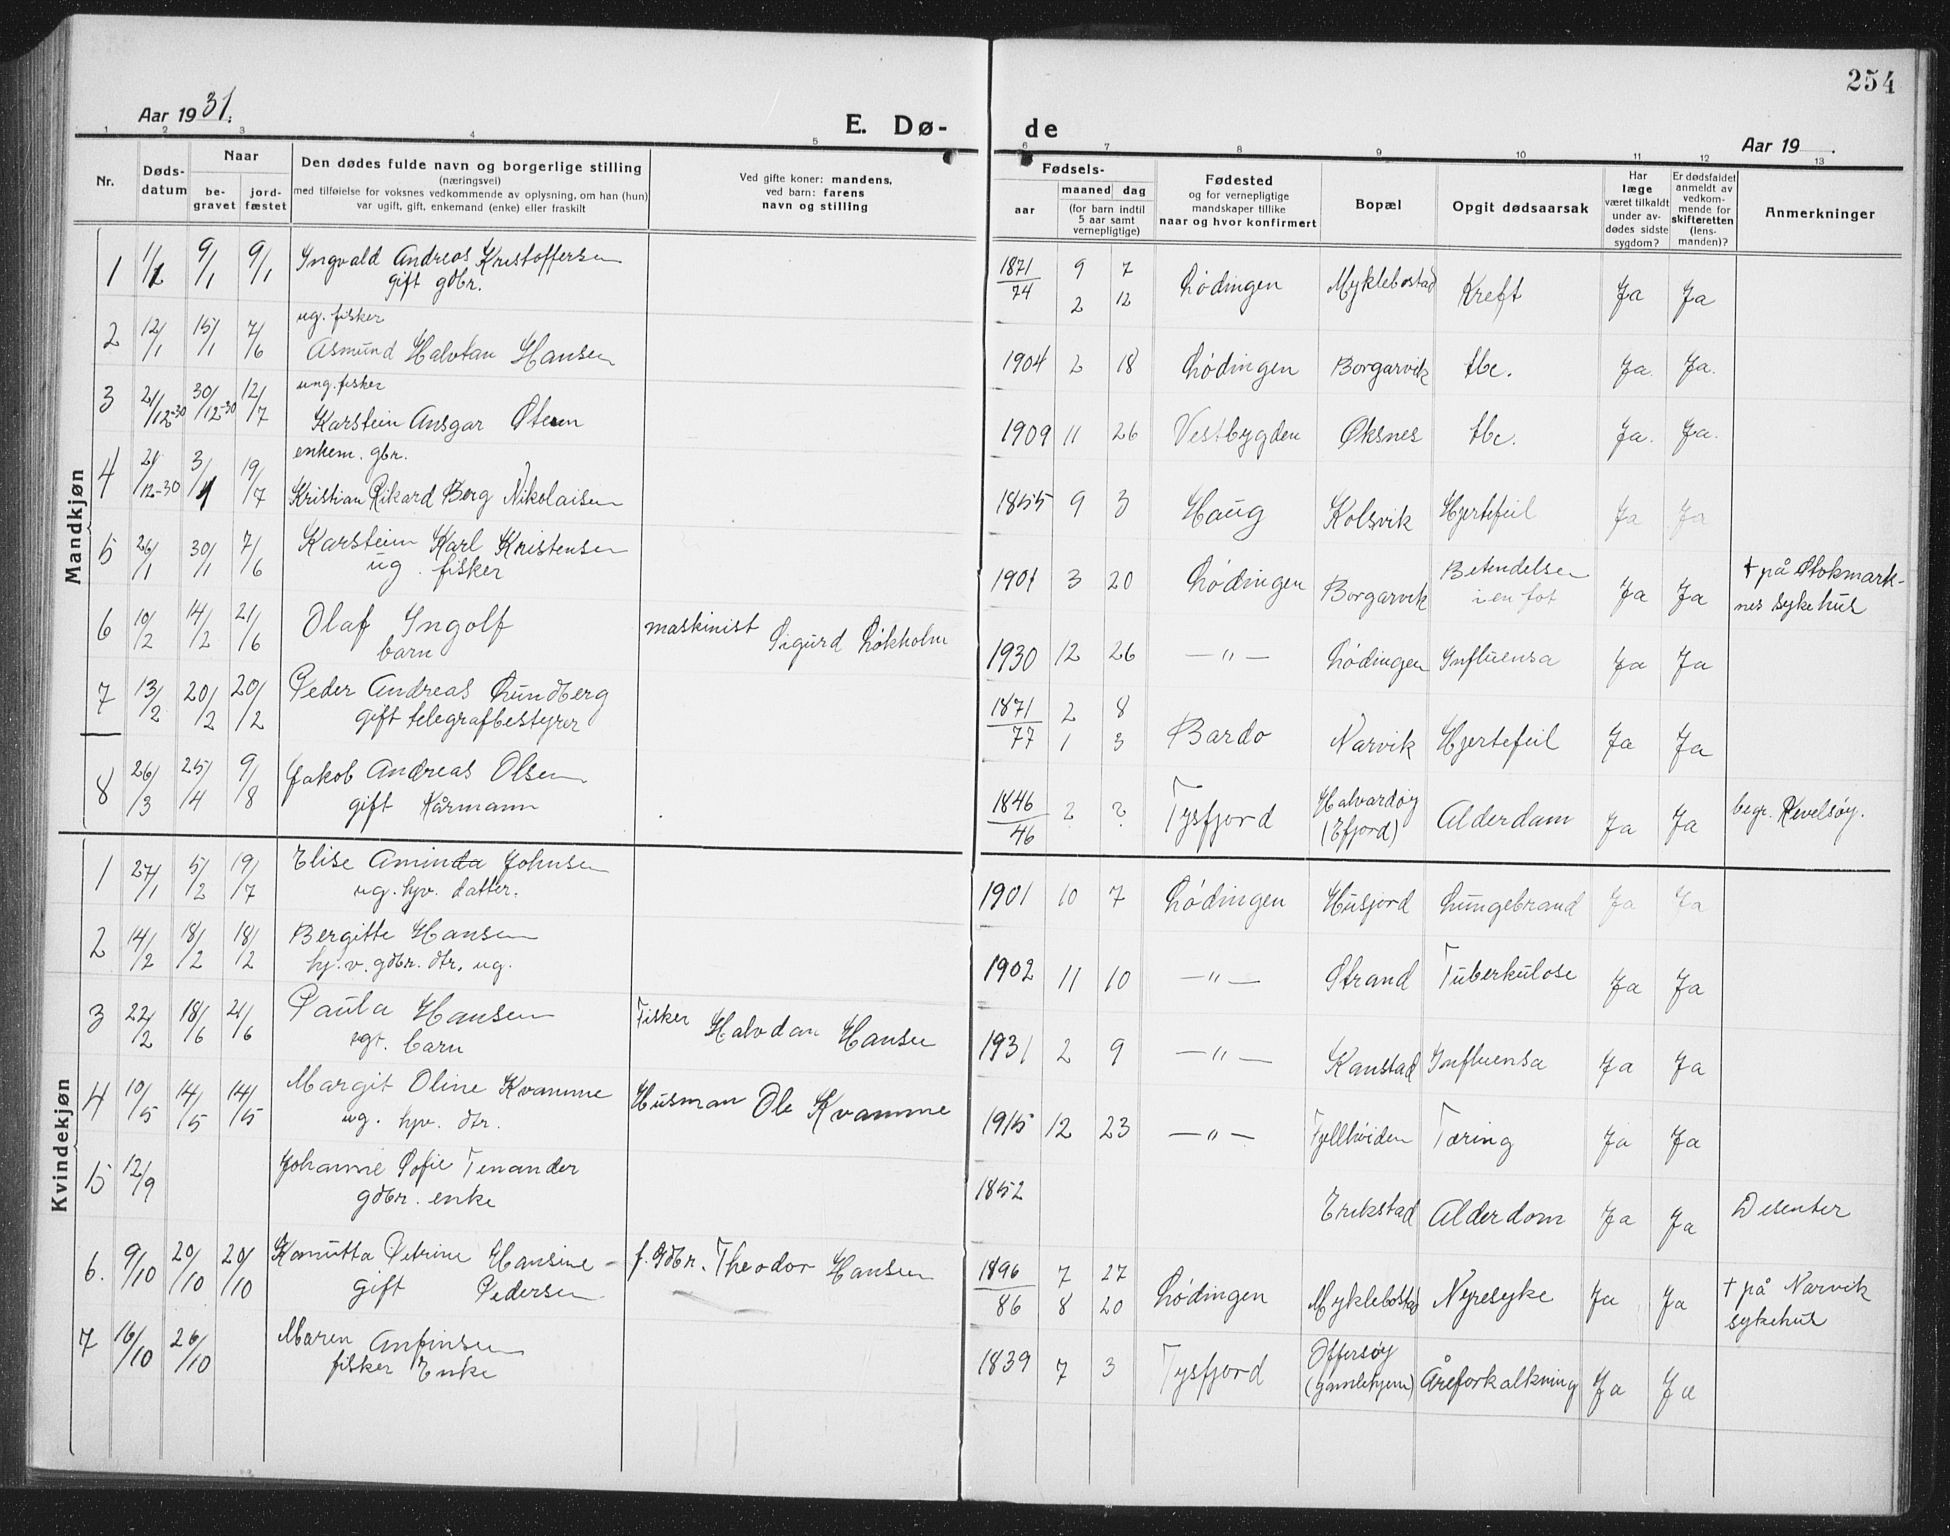 254
Aar 1931.
E. Dø-
de
Aar 19 .
1 2 3 4 5 6 7 8 9 10 11 12 13
Nr.
Døds-
datum
Naar
be-
gravet
jord-
fæstet
Den dødes fulde navn og borgerlige stilling
(næringsvei)
med tilføielse for voksnes vedkommende av oplysning, om han (hun)
var ugift, gift, enkemand (enke) eller fraskilt
Ved gifte koner: mandens,
ved barn: farens
navn og stilling
Fødsels-
aar
maaned dag
(for barn indtil
5 aar samt
vernepligtige)
Fødested
og for vernepligtige
mandskaper tillike
naar og hvor konfirmert
Bopæl
Opgit dødsaarsak
Har
læge
været tilkaldt
under av-
dødes sidste
sygdom?
Er dødsfaldet
anmeldt av
vedkom-
mende for
skifteretten
(lens-
manden)?
Anmerkninger
Mandkjøn
1 1/1 9/1 9/1 Ingvald Andreas Kristoffersen 1871 9 7 Lødingen Myklebostad Kreft Ja Ja
gift gdbr. 74 2 12
2 12/1 15/1 7/6 ug. fisker
Asmund Halvtan Hansen 1904 2 18 Lødingen Borgarvik tbc. Ja. Ja.
3 21/12-30 30/12-30 12/7 ung. fisker
Karstein Ansgar Steen 1909 11 26 Vestbygden Øksnes tbc. Ja. Ja.
4 21/12-30 3/1 19/7 enkem. gbr.
Kristian Rikard Berg Nikolaisen 1855 9 3 Haug Kolsvik Hjertefeil Ja Ja
5 26/1 30/1 7/6 Karstein Karl Kristensen 1901 3 20 Lødingen Borgarvik Betendelse Ja Ja † på Stokmark-
ug. fisker i en fot nes sykehus
6 10/2 14/2 21/6 Olaf Ingolf maskinist Sigurd Løkholm 1930 12 26 —"— Lødingen Influensa Ja Ja
barn
7 13/2 20/2 20/2 Peder Andreas Lundberg 1871 2 8 Bardo Narvik Hjertefeil Ja Ja
gift telegrafbestyrer 77 1 3
8 26/3 25/4 9/8 Jakob Andreas Olsen 1846 2 ? Tysfjord Halvardøy Alderdom Ja Ja begr. Revelsøy.
gift Kårmann 46 (Efjord)
Kvindekjøn
1 27/1 5/2 19/7 Elise Aminda Johnsen 1901 10 7 Lødingen Husjord Lungebrand Ja Ja
ug. hjv. datter.
2 14/2 18/2 18/2 Bergitte Hansen 1902 11 10 —"— Strand Tuberkulose Ja Ja
hj. v. gdbr. dtr. ug.
3 22/2 18/6 21/6 Paula Hansen Fisker Halvdan Hansen 1931 2 9 —"— Kanstad Influensa Ja Ja
barn
4 10/5 14/5 14/5 Margit Oline Kvamme Husman Ole Kvamme 1915 12 23 —"— Fjellhøiden Tæring Ja Ja
ug. hjv. dtr.
5 12/9 Johanne Sofie Tenander 1852 Erikstad Alderdom Ja Ja Disenter
gdbr. enke
6. 9/10 20/10 20/10 Petrine Hansine - f. Gdbr. Theodor Hansen 1896 7 27 Lødingen Myklebostad Nyresyke Ja Ja † på Narvik
gift Pedersen 86 8 20 sykehus
7 16/10 26/10 Maren Anfinsen 1839 7 3 Tysfjord Offersøy Åreforkalkning Ja Ja
fisker Enke (gamlehjem)